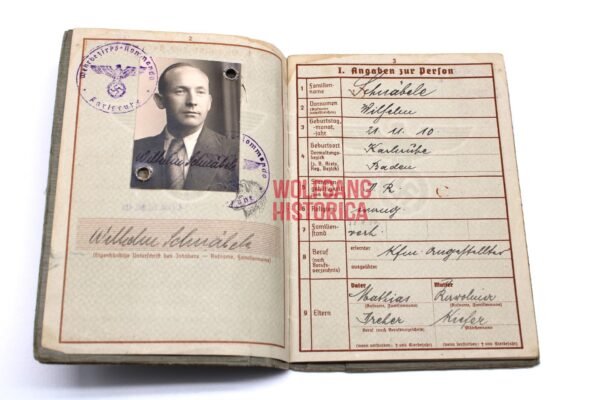 2
Wehrbezirks-Kommando
Karlsruhe
Wilhelm Schnäbele
Kommando
Wilhelm Schnäbele
(Eigenhändige Unterschrift des Inhabers — Rufname, Familienname)
3
I. Angaben zur Person
1 Familien-name Schnäbele
2 Vornamen (Rufname unterstreichen) Wilhelm
3 Geburtstag, -monat, -jahr 21. 11. 10
4 Geburtsort Verwaltungsbezirk (z. B. Kreis, Reg. Bezirk) Karlsruhe
Baden
D. R.
WOLFGANG
HISTORICA
6 Religion evang.
7 Familien-stand verh.
8 Beruf (nach Berufs-verzeichnis) erlernter Kfm. Angestellter
ausgeübter
9 Eltern
Vater Mutter
Mathias
(Rufname, Familienname) (Rufname, Familienname)
Kiefer
Beruf (nach Berufsverzeichnis) Mädchenname
(wenn verstorben: † und Sterbejahr) (wenn verstorben: † und Sterbejahr)